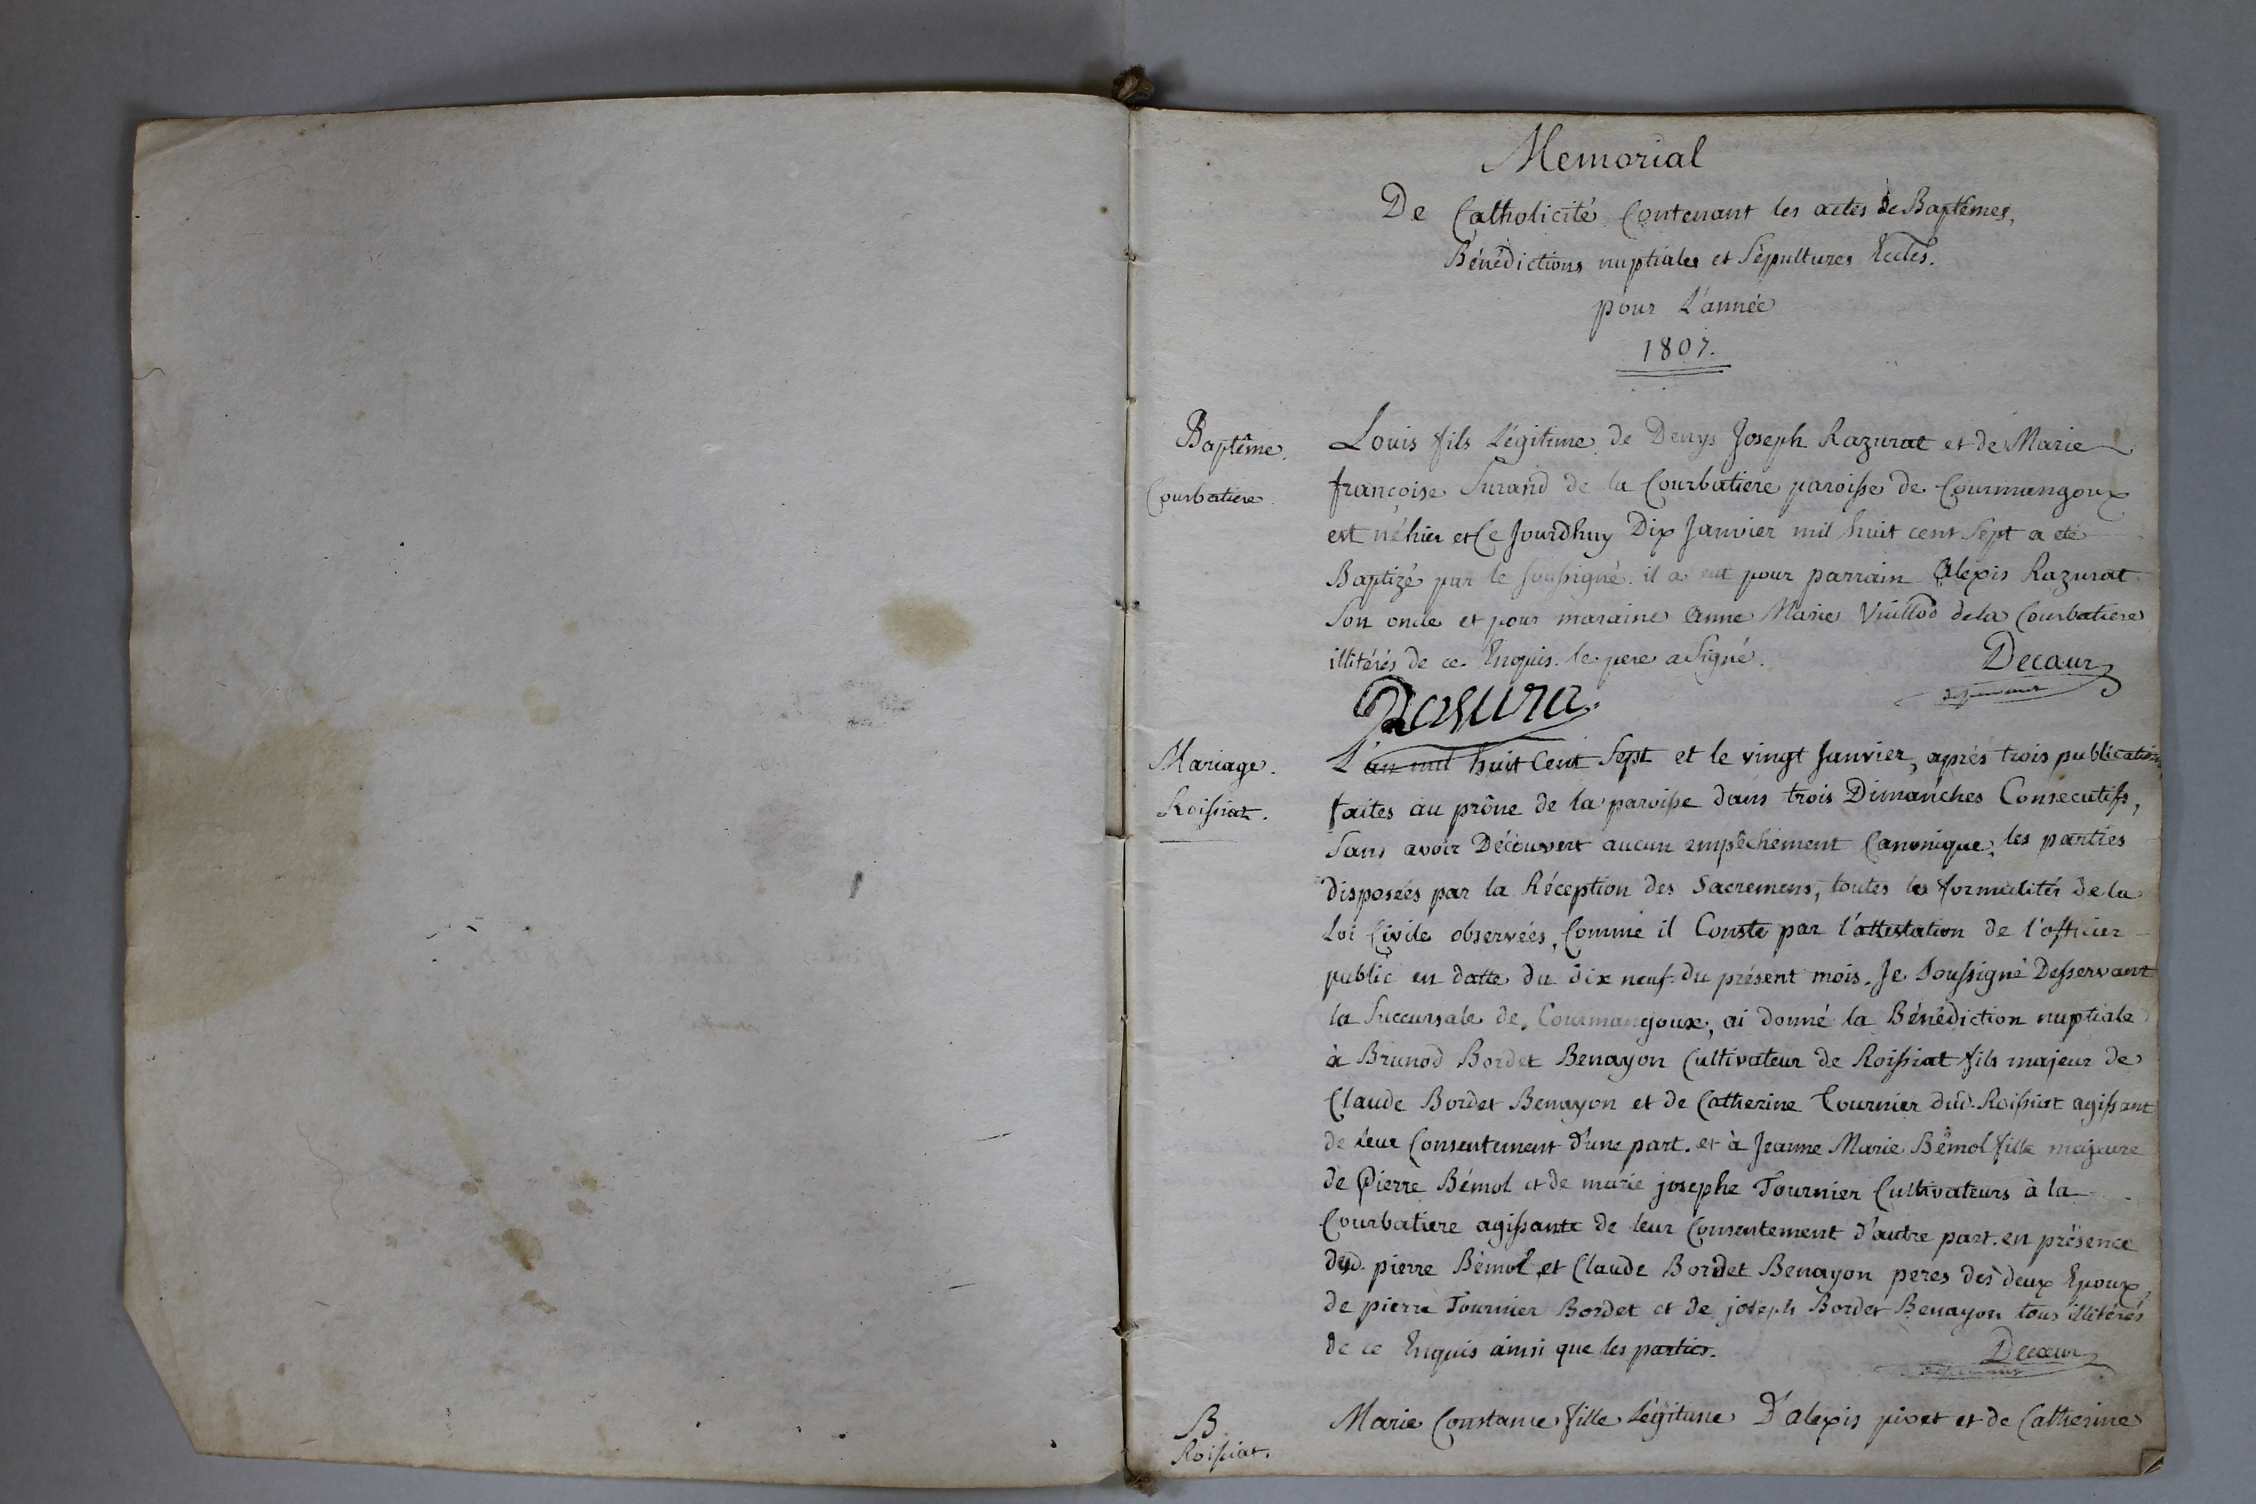 Memorial
De Catholicité Contenant les actes de Baptêmes,
Bénédictions nuptiales et Sépultures Eccles.
pour L'année
1807.
Baptême.
Courbatiere.
Louis fils Légitime de Denys Joseph Razurat et de Marie
françoise Surand de la Courbatiere paroisse de Courmangoux
est né hier et Ce Jourdhuy Dix Janvier mil huit cent Sept a eté
Baptizé par le soussigné. il a eut pour parrain Alexis Razurat
Son oncle et pour maraine Anne Marie Vuillod dela Courbatiere
illitérés de ce Enquis. le pere a Signé.
Decœur
desservant
Rasura
Mariage.
Roissiat.
L'an mil huit Cent Sept et le vingt Janvier, aprés trois publications
faites au prône de la paroisse dans trois Dimanches Consecutifs,
Sans avoir Découvert aucun empêchement Canonique, les parties
disposées par la Réception des Sacremens, toutes les formalités de la
Loi Civile observées, Comme il Conste par l'attestation de l'officier
public en datte du dix neuf du présent mois. Je Soussigné Desservant
la Succursale de Courmangoux, ai donné la Bénédiction nuptiale
à Brunod Bordet Benayon Cultivateur de Roissiat fils majeur de
Claude Bordet Benayon et de Catherine Tournier dud. Roissiat agissant
de leur Consentement d'une part. et à Jeanne Marie Bémol fille majeure
de Pierre Bémol et de marie josephe Tournier Cultivateurs à la
Courbatiere agissante de leur Consentement d'autre part. en présence
desd. pierre Bémol et Claude Bordet Benayon peres des deux Epoux,
de pierre Tournier Bordet et de joseph Bordet Benayon tous illitérés
de ce Enquis ainsi que les parties.
Decœur
desservant
B.
Roissiat.
Marie Constance fille Légitime D'alexis pivet et de Catherine